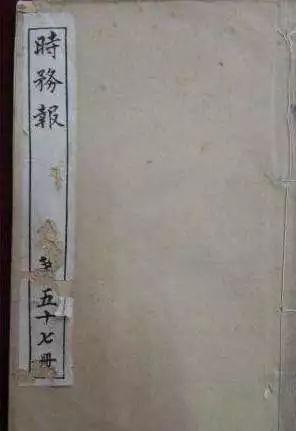 時務報
五十七冊